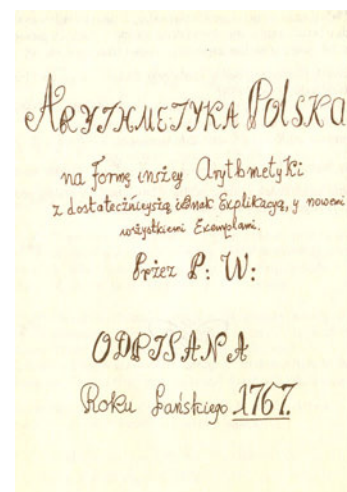 ARYTHMETYKA POLSKA
na Formę inszey Arytbmetyki
z dostatecznieyszą iednak Explikacyą, y nowemi
wszystkiemi Exemplami.
Przez P: W:
ODPISANA
Roku Pańskiego 1767.